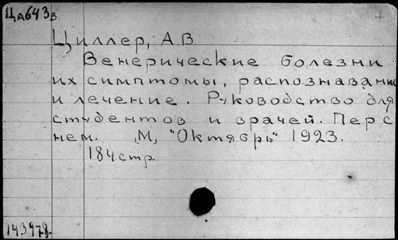 Ца643в
Циллер, А.В
Венерические болезни
их симптомы, распознавание
и лечение. Руководство для
студентов и врачей. Пер с
нем. М, "Октябрь" 1923.
184стр.